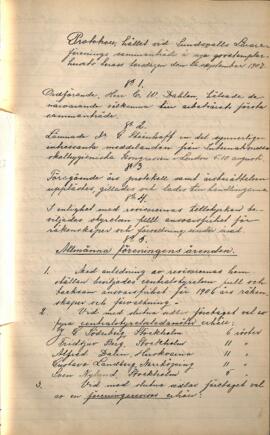 Protokoll, hållet vid Sundsvalls Lärare-
förenings sammanträde i nya godtemplar-
huset lördagen den september 1907.
§ 1.
Ordförande, Herr C. W. Dahlen, hälsade de
närvarande välkomna till arbetsårets första
sammanträde.
§ 2.
Lämnade Dr. G. Steinhaff en det synnerligen
intressanta meddelanden från Internationella
skolhygieniska Kongressen i London 5-10 augusti.
§ 3
Föregående års protokoll samt årsberättelsen
upplästes, gillades och lades till handlingarna.
§ 4.
I enlighet med revisorernas tillstyrkan be-
viljades styrelsen full ansvarsfrihet för
räkenskaper och förvaltning under året.
§ 5.
Allmänna föreningens ärenden.
1. Med anledning av revisorernas hem
ställan beviljades centralstyrelsen full och
ansvarsfrihet för 1906 års räken-
skaper och förvaltning.
2. Vid med slutna sedlar företaget val av
fyra centralstyrelseledamöter erhöll:
Söderberg, Stockholm 6 röster
Fridtjuv Berg, Stockholm 11 "
Alfred Dalin, Huskvarna 11 "
Gustava Landberg, Norrköping 11 "
Sven Nylund, Stockholm 5 "
3. Vid med slutna sedlar företaget val
av en föreningsrevisor erhöll: